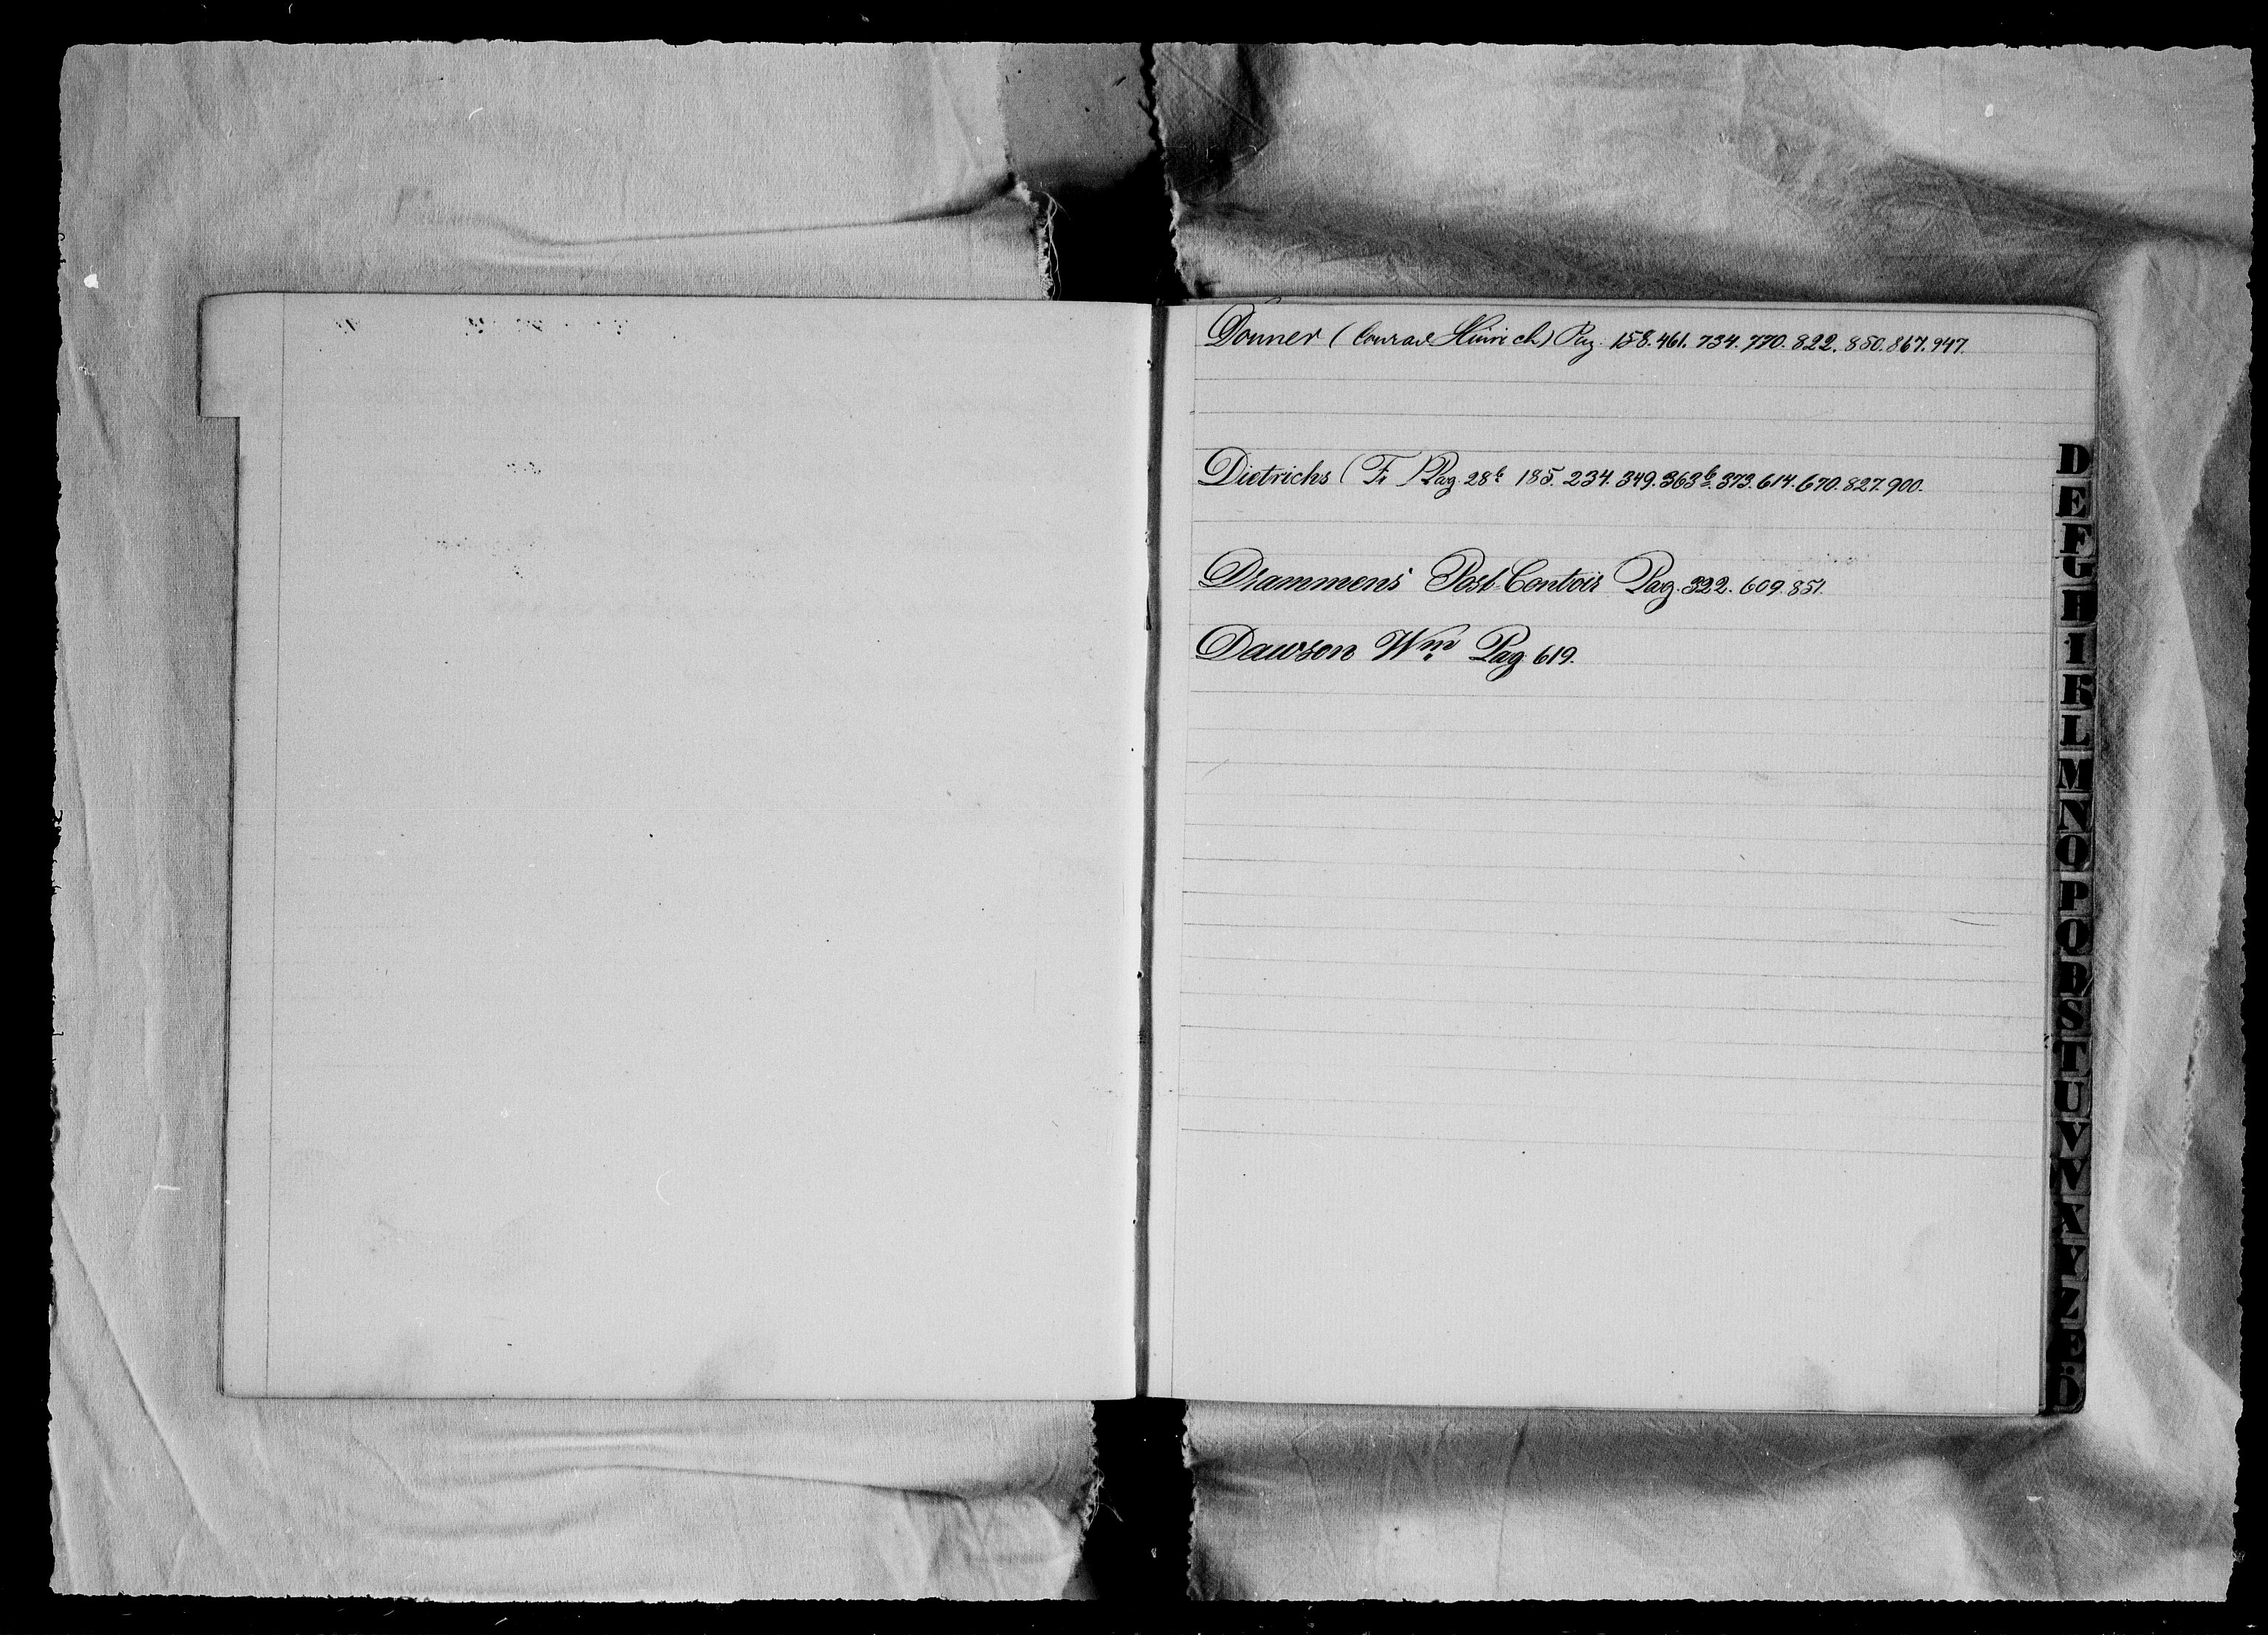 Donner (Conrad Hinrich) Pag. 158. 461. 734. 770. 822. 850. 867. 947.
Dietrichs (Fr.) Pag. 28b 185. 234. 349. 363b. 373. 614. 670. 827. 900.
Drammens Post-Contoir Pag. 322. 609. 851.
Dawson Wm Pag. 619.
D
E
F
G
H
I
K
L
M
N
O
P
Q
R
S
T
U
V
W
X
Y
Z
Æ
Ö